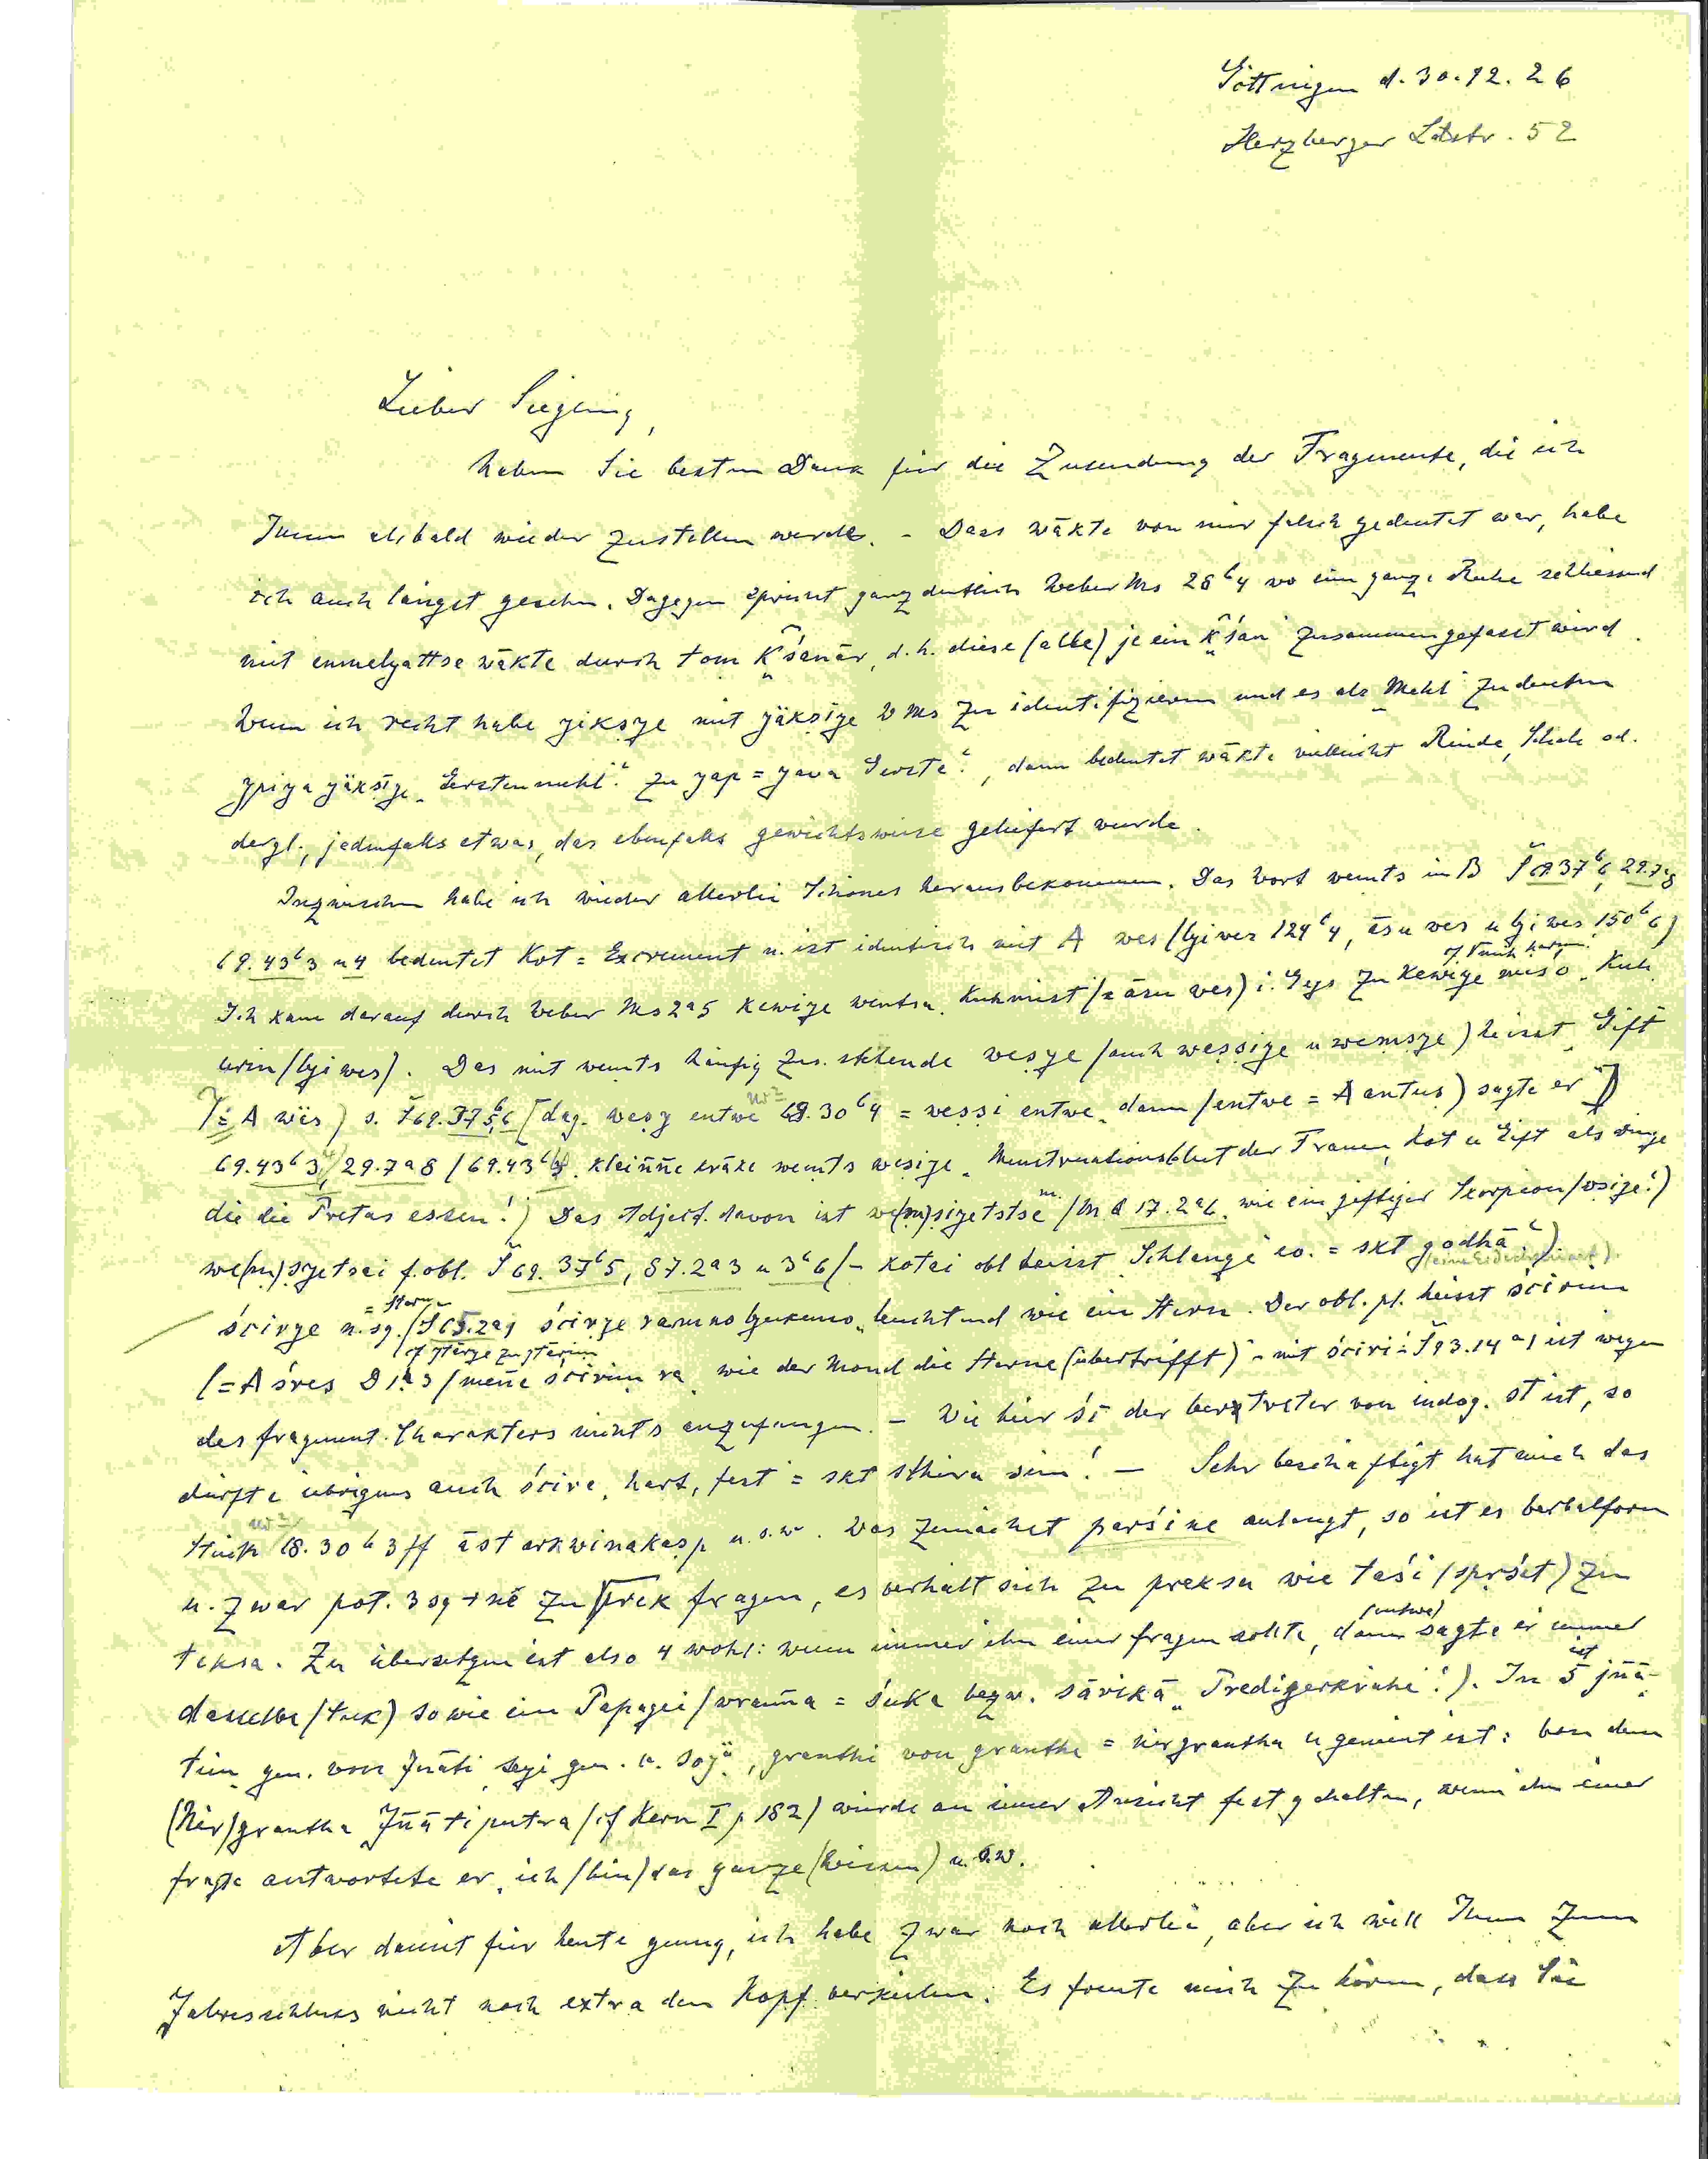 Göttingen d. 30.12.26
Herzberger Ldstr. 52
Lieber Siegling,
haben Sie besten Dank für die Zusendung der Fragmente, die ich
Ihnen alsbald wieder zustellen werde. – Dass wäkte von mir falsch gedeutet war, habe
ich auch längst gesehn. Dagegen spricht ganz deutlich Weber Ms 28b4 wo eine ganze Reihe schliessend
mit enmelyattse wäkte durch tom kśanär, d.h. diese (alle) je ein kśan zusammengefasst wird.
Wenn ich recht habe yiksye mit yäkṣiye W Ms zu identifizieren und es als Mehl zu deuten
ypiya yäkṣiye „Gerstenmehl“ zu yap = yava Gerste, dann bedeutet wäkte vielleicht Rinde, Schale od.
dergl., jedenfalls etwas, das ebenfalls gewichtsweise geliefert wurde.
Inzwischen habe ich wieder allerlei Schönes herausbekommen. Das Wort wents in B Š 69.37b6, 29.7a8
69.43b3 u 4 bedeutet Kot = Excrement u. ist identisch mit A wes (lyi wes 124b4, āsu wes u lyi wes 150b6)
Ich kam darauf durch Weber Ms 2a5 kewiye wentsa „Kuhmist (= āsu wes) i. Ggs zu kewiye miśo „Kuh
urin (lyi wes). Das mit wents häufig zus. stehende weṣye (auch weṣṣiye u wemṣye) heisst „Gift
(= A wäs) s. Š 69.37b5,6 [dag. weṣy entwe 68.30b4 = weṣṣi entwe „dann (entwe = A antus) sagte er]
69.43b3, 29.7a8 (69.43b3 kleiññe eräke wents weṣiye „Menstruationsblut der Frauen, Kot u Gift als Dinge
die die Pretas essen!) Das Adjekt. davon ist we(m)ṣiyetstse m. (M Q 17.2a6 „wie ein giftiger Skorpion (wṣiye!)
we(m)ṣyetsai f. obl. Š 69.37b5, 87.2a3 u 3b6 (– kotai obl heisst „Schlange“ eo. = skt godhā).
ścirye n. sg. = Stern (Š 65.2a1 ścirye ramno lyukemo „leuchtend wie ein Stern. Der obl. pl. heisst ścirim
(= A śres D 1b3 (meñe ścirim ra „wie der Mond die Sterne (übertrifft) – mit ściri Š 93.14a1 ist wegen
des fragment. Charakters nichts anzufangen. – Wie hier śc der Vertreter von indog. st ist, so
dürfte übrigens auch ścire „hart, fest = skt sthira sein! – Sehr beschäftigt hat mich das
Stück 68.30b3 ff āst erkwinakaṣp u.s.w. Was zunächst parśine anlangt, so ist es Verbalform
u. zwar pot. 3 sg + ne zu √prek fragen, es verhält sich zu preksa wie taśi (sprśet) zu
teksa. Zu übersetzen ist also 4 wohl: wenn immer ihn einer fragen sollte, dann (entwe) sagte er immer
dasselbe (tuk) sowie ein Papagei (wrauña = śuka bezw. sārikā „Predigerkrähe!). In 5 ist jñā-
tim gen. von Jñāti, grantha = nirgrantha u gemeint ist: von dem
(Nir)grantha Jñātiputra (cf Kern I p 182) wurde an seiner Ansicht festgehalten, wenn ihn einer
fragte antwortete er „ich (bin) das ganze (Wissen) u.s.w.
Aber damit für heute genug, ich habe zwar noch allerlei, aber ich will Ihnen zum
Jahresschluss nicht noch extra den Kopf verkeilen. Es freute mich zu hören, dass Sie